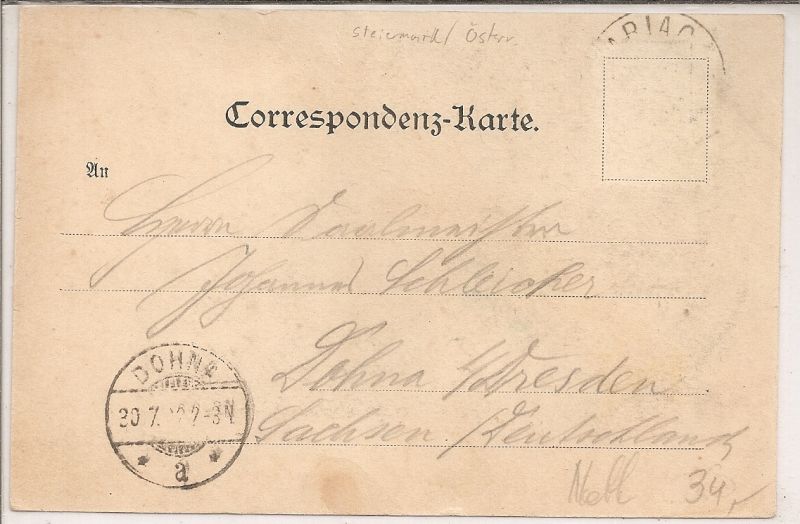 Steiermark/ Österr.
ARIAC
Correspondenz-Karte.
An
Herrn
Johannes Schleicher
Dohna b/Dresden
Sachsen /Deutschland
DOHNA
30.7. 2-3N
* a *
34,-